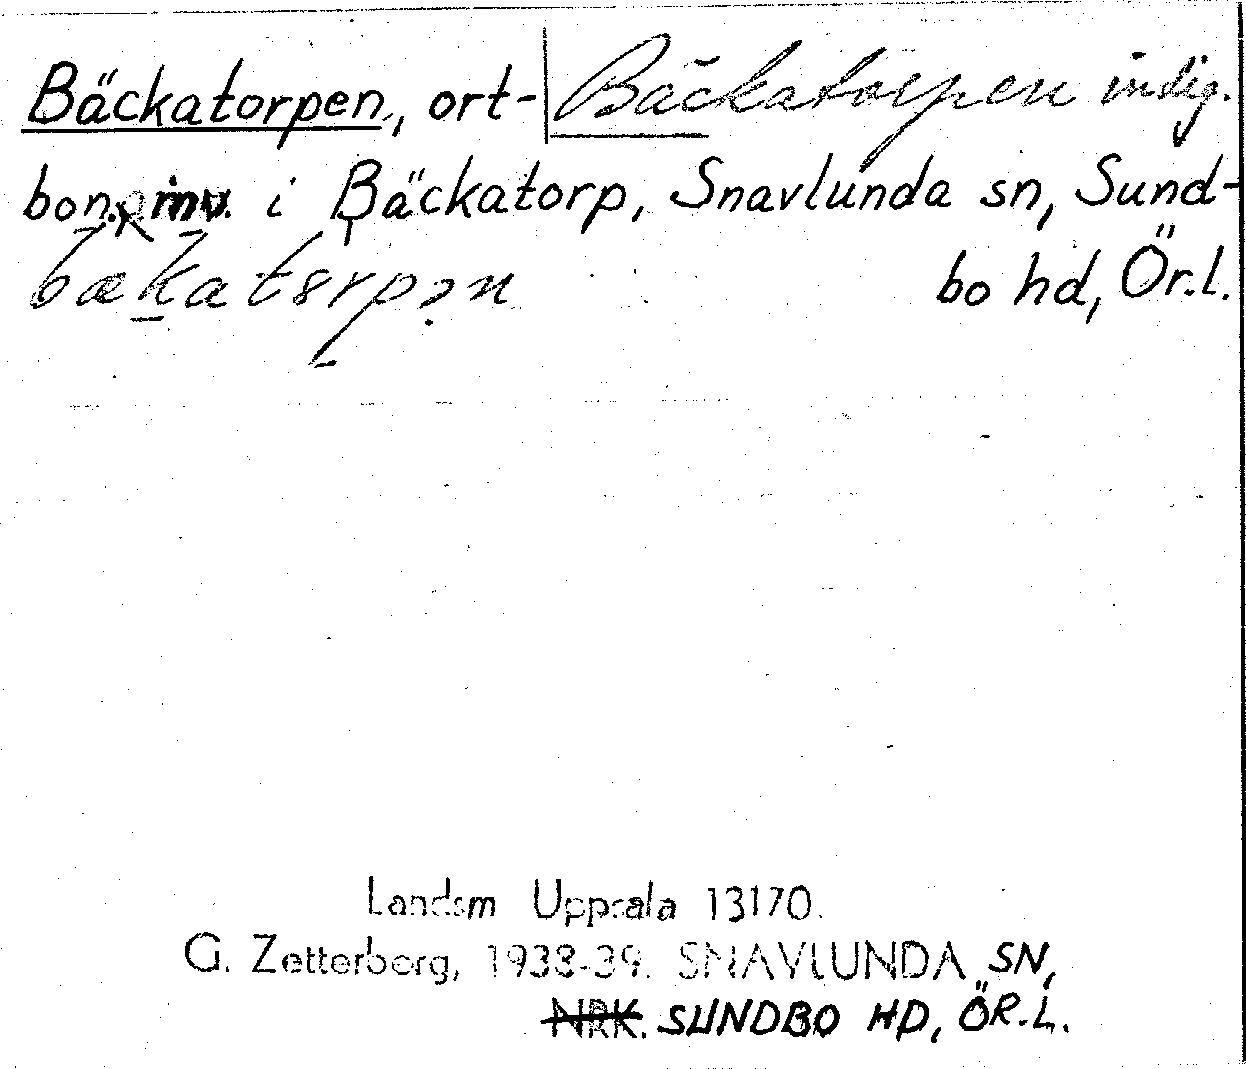 Bäckatorpen, ort-| Bäckatorpen inlig.
bon. inv. i Bäckatorp, Snavlunda sn, Sund-
bo hd, Ör.l.
Landsm Uppsala 13170.
G. Zetterberg, 1938-39. SNAVLUNDA SN,
NRK. SUNDBO HD, ÖR.L.